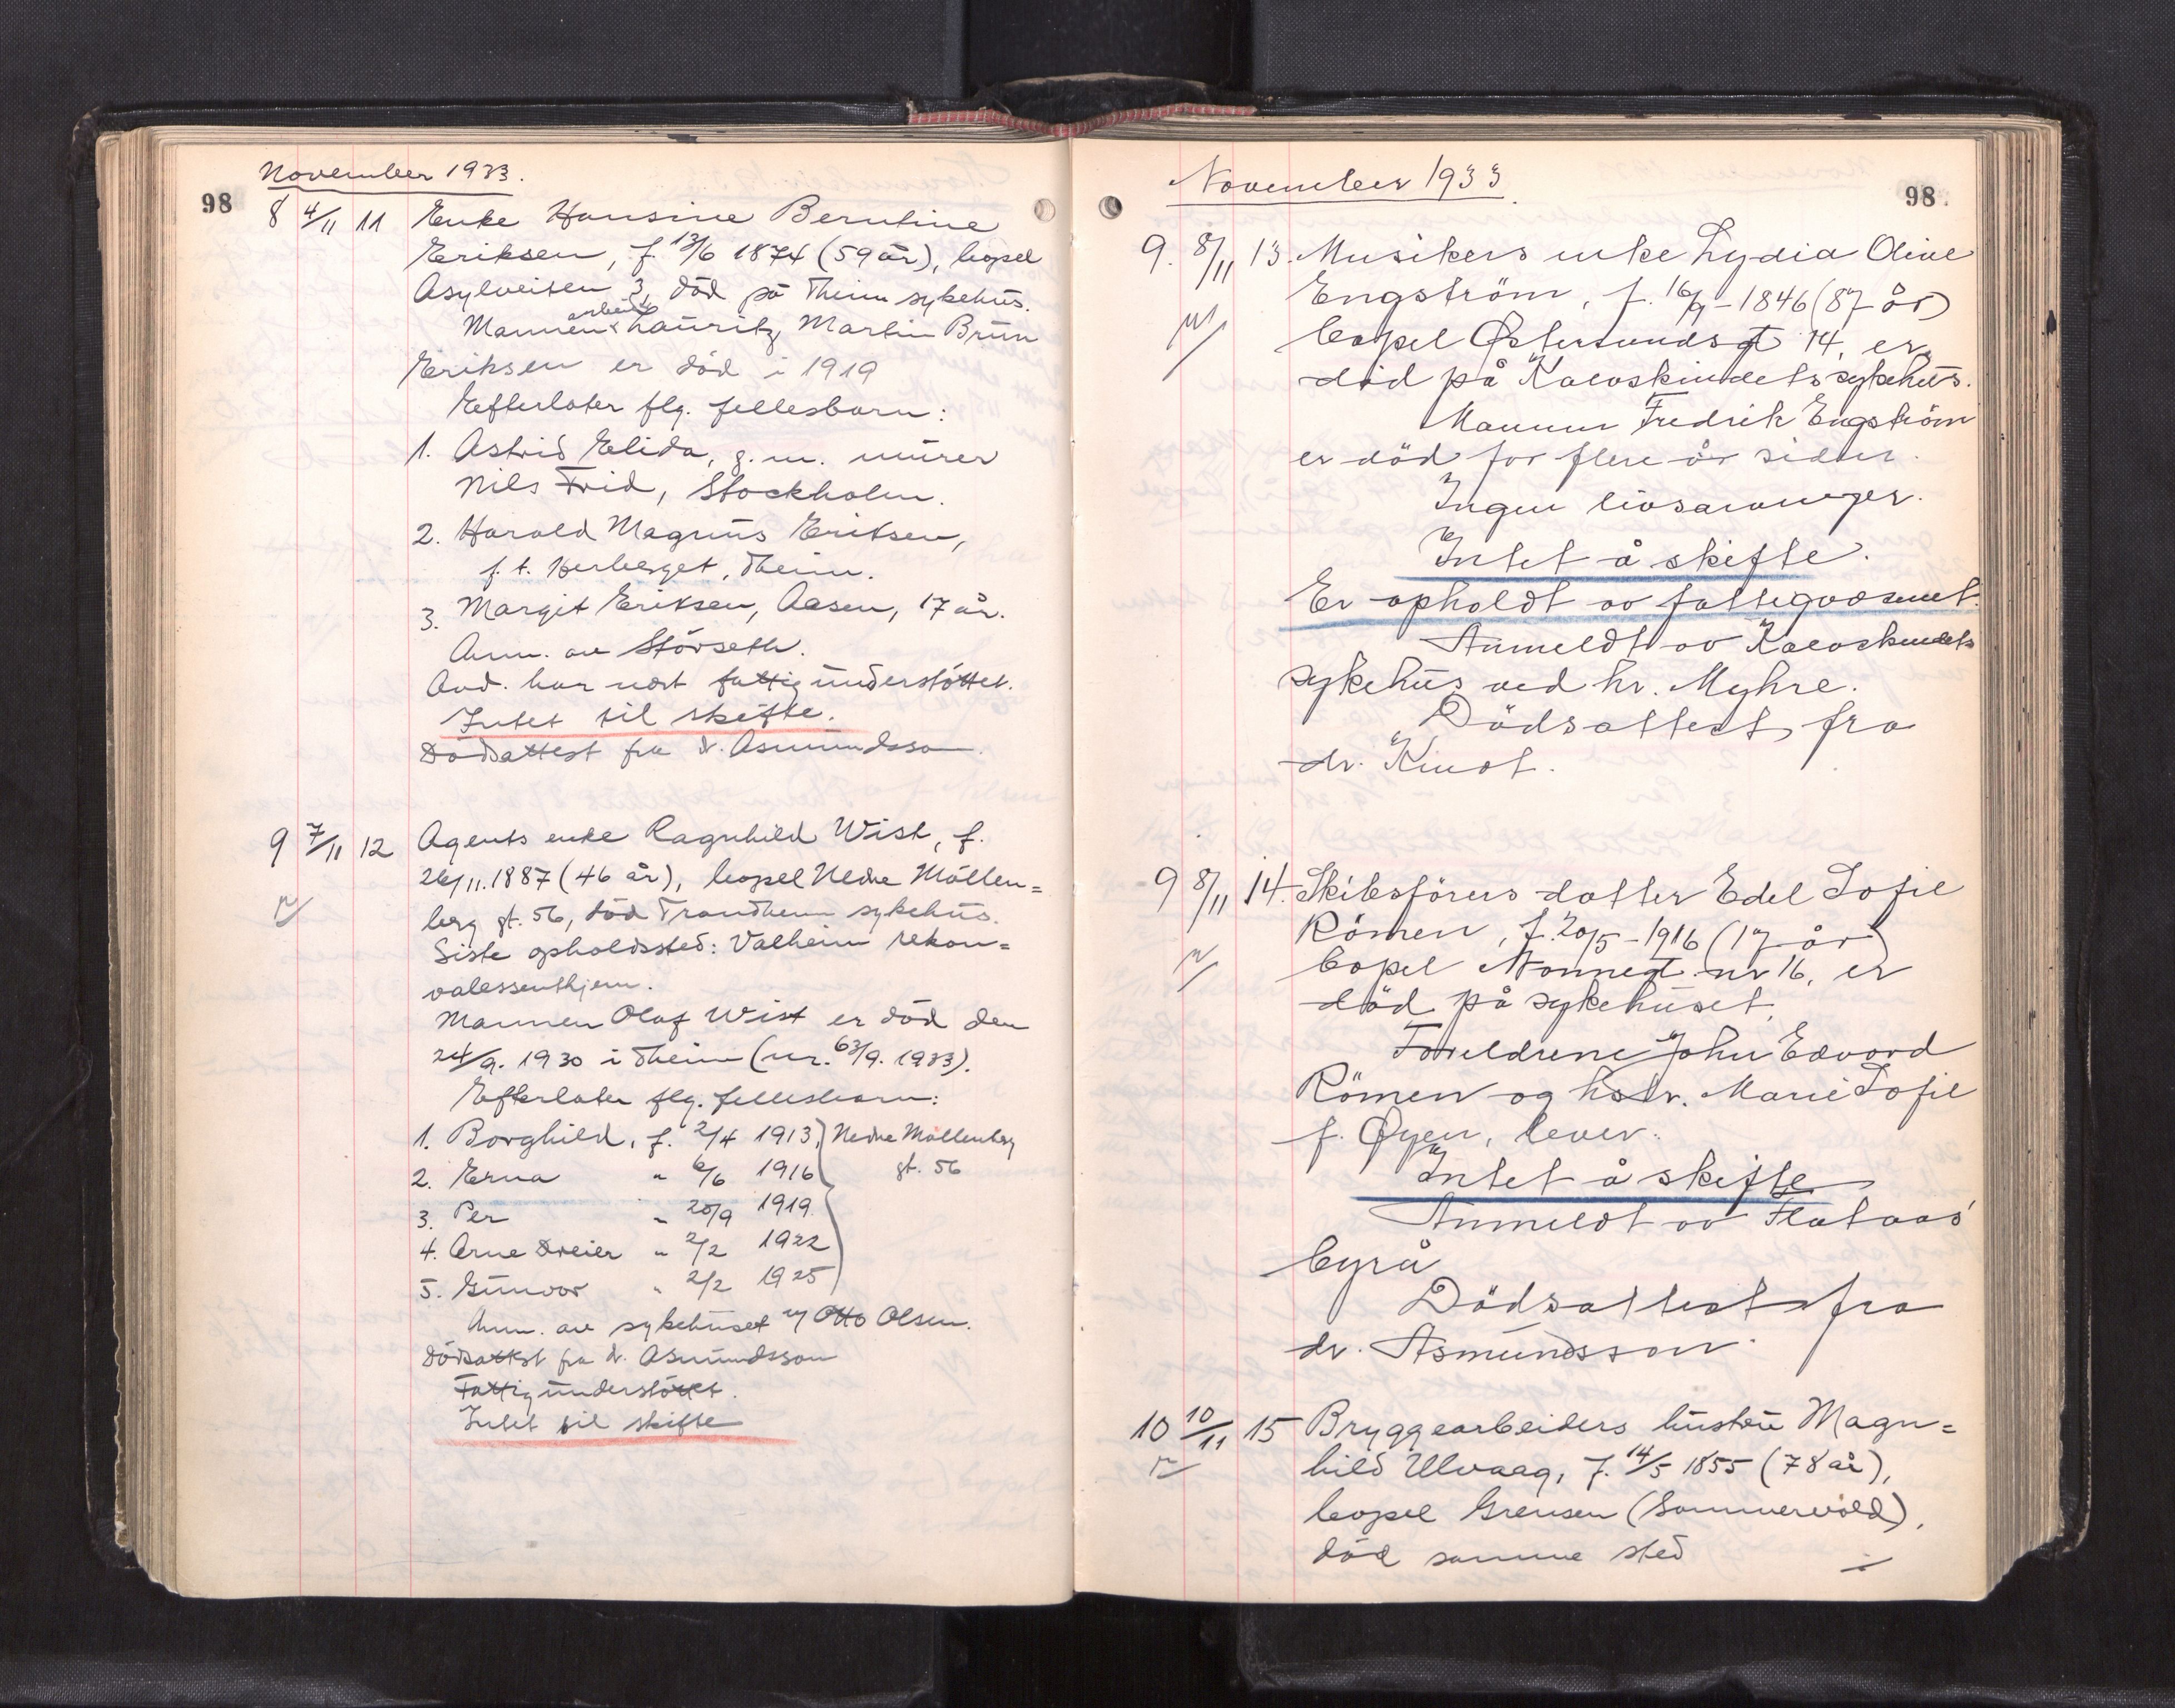 November 1933.
98
8 4/11 11 Enke Hansine Berntine
Eriksen, f. 13/6 1874 (59 år), bopel
Asylveiten 3, död på Theim sykehus.
arbeider
Mannen Lauritz Martin Brun
Eriksen er död i 1919
Efterlater flg. fellesbarn:
1. Astrid Elida, g.m. murer
Nils Frid, Stockholm.
2. Harald Magnus Eriksen,
f. t. Herberget, Theim.
3. Margit Eriksen, Aasen, 17 år.
Anm. av Störseth.
Avd. har vært fattigunderstöttet.
Intet til skifte.
Dödsattest fra dr. Asmundsson.
9 7/11 12 Agents enke Ragnhild Wist, f.
26/11.1887 (46 år), bopel Nedre Möllen=
berg gt. 56, död Trondheim sykehus.
Siste opholdssted: Valheim rekon=
valessenthjem.
Mannen Olaf Wist er död den
24/9. 1930 i Theim (nr. 63/9. 1933).
Efterlater flg. fellesbarn:
1. Borghild, f. 2/4 1913, Nedre Möllenberg
2. Erna " 6/6 1916 gt. 56
3. Per " 20/9 1919
4. Arne Dreier " 2/2 1922
5. Gunvor " 2/2 1925
Anm. av sykehuset v/ Otto Olsen.
Dödsattest fra dr. Asmundsson
Fattigunderstöttet.
Intet til skifte
November 1933.
98
9. 8/11 13. Musikers enke Lydia Olive
Engström, f. 16/9-1846 (87 år)
bopel Østersundsgt 14, er
död på Kalvskindets sykehus.
Mannen Fredrik Engström
er död for flere år siden.
Ingen livsarvinger.
Intet å skifte.
Er opholdt av fattigvæsenet.
Anmeldt av Kalvskindets
sykehus ved hr. Myhre.
Dödsattest fra
dr. Kindt.
9 8/11 14. Skibsförers datter Edel Sofie
Römen, f. 20/5-1916 (17 år)
bopel Nonnegt. nr 16, er
död på sykehuset.
Foreldrene John Edvard
Römen og hstr. Marie Sofie
f. Øyen, lever.
Intet å skifte
Anmeldt av Flataas'
byrå
Dödsattest fra
dr. Asmundsson.
10 10/11 15 Bryggearbeiders hustru Magn=
hild Ulvaag, f. 14/5 1855 (78 år),
bopel Grensen (Sommervold),
död samme sted